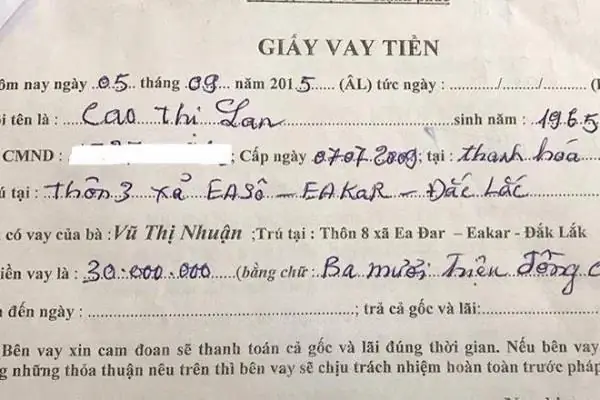 GIẤY VAY TIỀN
ôm nay ngày ..05.. tháng .09... năm 2015..... (ÂL) tức ngày : ........../........./..........
i tên là : ....Cao Thị Lan..............................sinh năm : .1965
CMND : ; Cấp ngày 07.07.2009; tại : thanh hóa
ú tại : .thôn 3 xã EASÔ - EAKAR - Đắc Lắc
có vay của bà : Vũ Thị Nhuận ;Trú tại : Thôn 8 xã Ea Đar – Eakar - Đắk Lắk
iền vay là : .30.000.000......(bằng chữ : .Ba mươi triệu đồng c
n đến ngày : ..................................................; trả cả gốc và lãi:......................
Bên vay xin cam đoan sẽ thanh toán cả gốc và lãi đúng thời gian. Nếu bên vay
g những thỏa thuận nêu trên thì bên vay sẽ chịu trách nhiệm hoàn toàn trước pháp